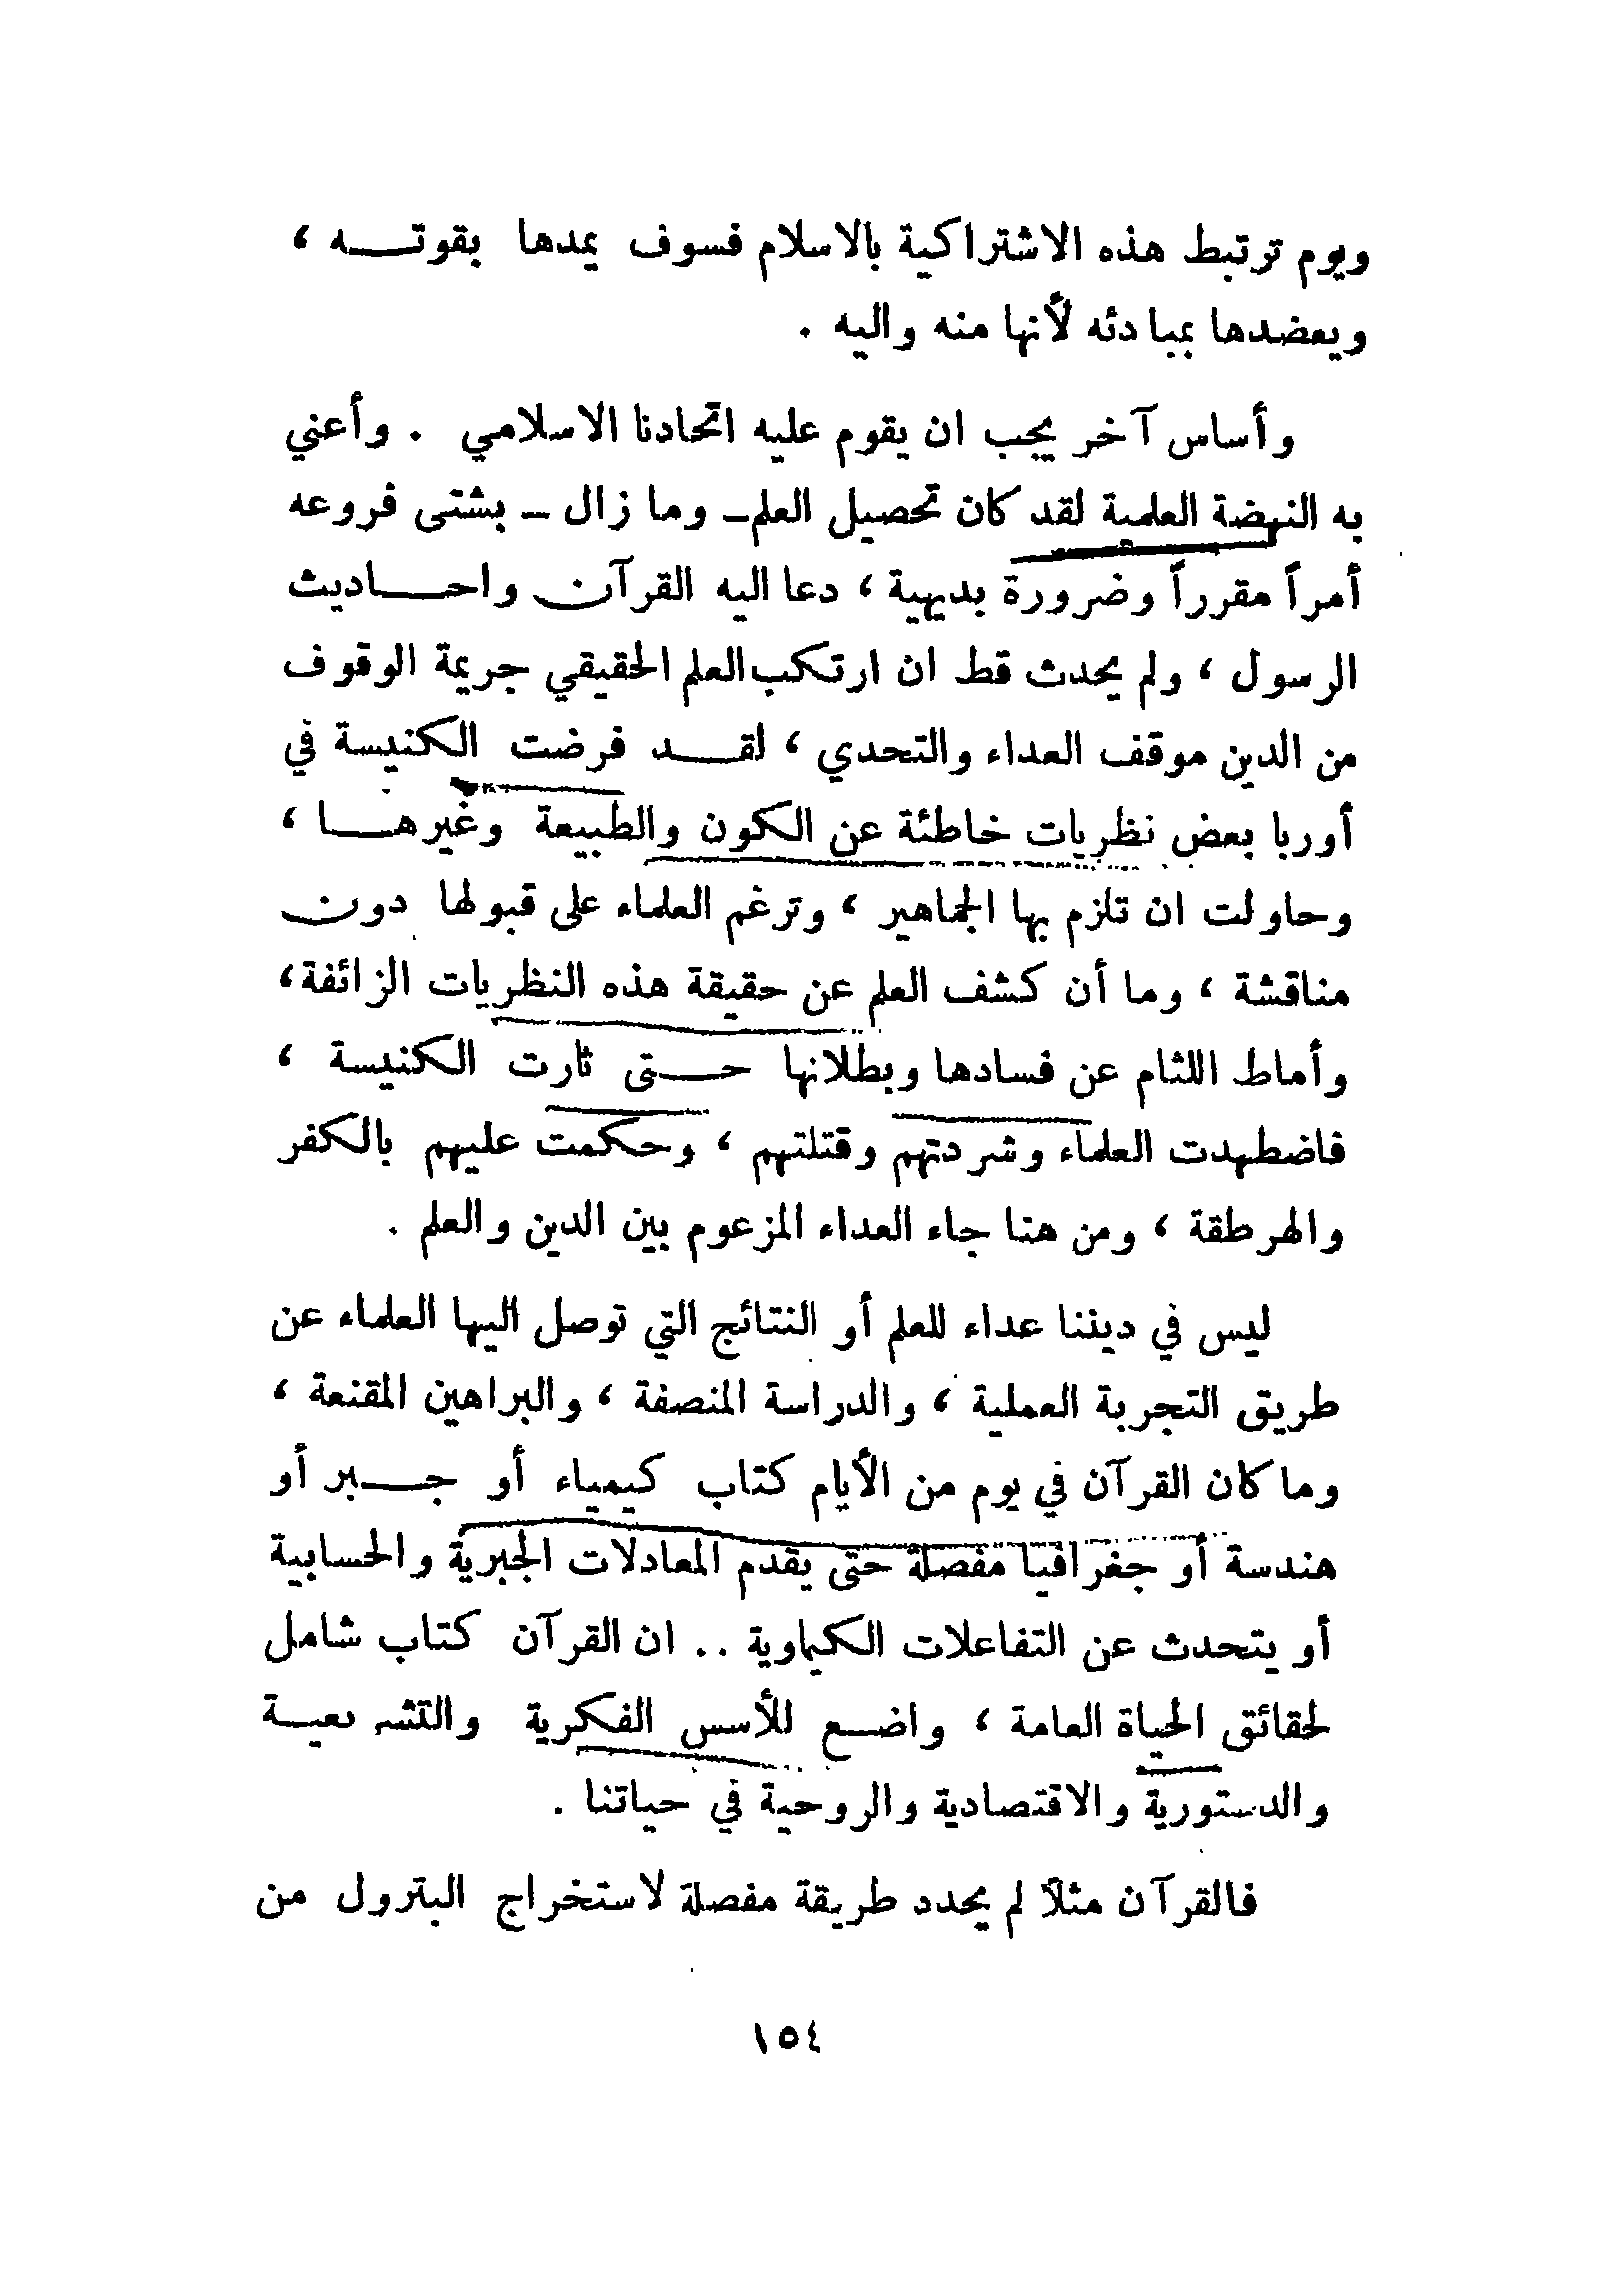 ويوم ترتبط هذه الاشتراكية بالاسلام فسوف يمدها بقوتــه ،
ويعضدها بمبادئه لأنها منه واليه .
وأساس آخر يجب ان يقوم عليه اتحادنا الاسلامي . وأعني
به النهضة العلمية لقد كان تحصيل العلم ــ وما زال ــ بشتى فروعه
أمراً مقرراً وضرورة بديهية ، دعا اليه القرآن واحــاديث
الرسول ، ولم يحدث قط ان ارتكب العلم الحقيقي جريمة الوقوف
من الدين موقف العداء والتحدي ، لقــد فرضت الكنيسة في
أوربا بعض نظريات خاطئة عن الكون والطبيعة وغيرهــا ،
وحاولت ان تلزم بها الجماهير ، وترغم العلماء على قبولها دون
مناقشة ، وما أن كشف العلم عن حقيقة هذه النظريات الزائفة،
وأماط اللثام عن فسادها وبطلانها حــتى ثارت الكنيسة ،
فاضطهدت العلماء وشردتهم وقتلتهم ، وحكمت عليهم بالكفر
والهرطقة ، ومن هنا جاء العداء المزعوم بين الدين والعلم .
ليس في ديننا عداء للعلم أو النتائج التي توصل اليها العلماء عن
طريق التجربة العملية ، والدراسة المنصفة ، والبراهين المقنعة ،
وما كان القرآن في يوم من الأيام كتاب كيمياء أو جــبر أو
هندسة أو جغرافيا مفصلة حتى يقدم المعادلات الجبرية والحسابية
أو يتحدث عن التفاعلات الكيماوية .. ان القرآن كتاب شامل
لحقائق الحياة العامة ، واضــع للأسس الفكرية والتشريعيــة
والدستورية والاقتصادية والروحية في حياتنا .
فالقرآن مثلاً لم يحدد طريقة مفصلة لاستخراج البترول من
١٥٤